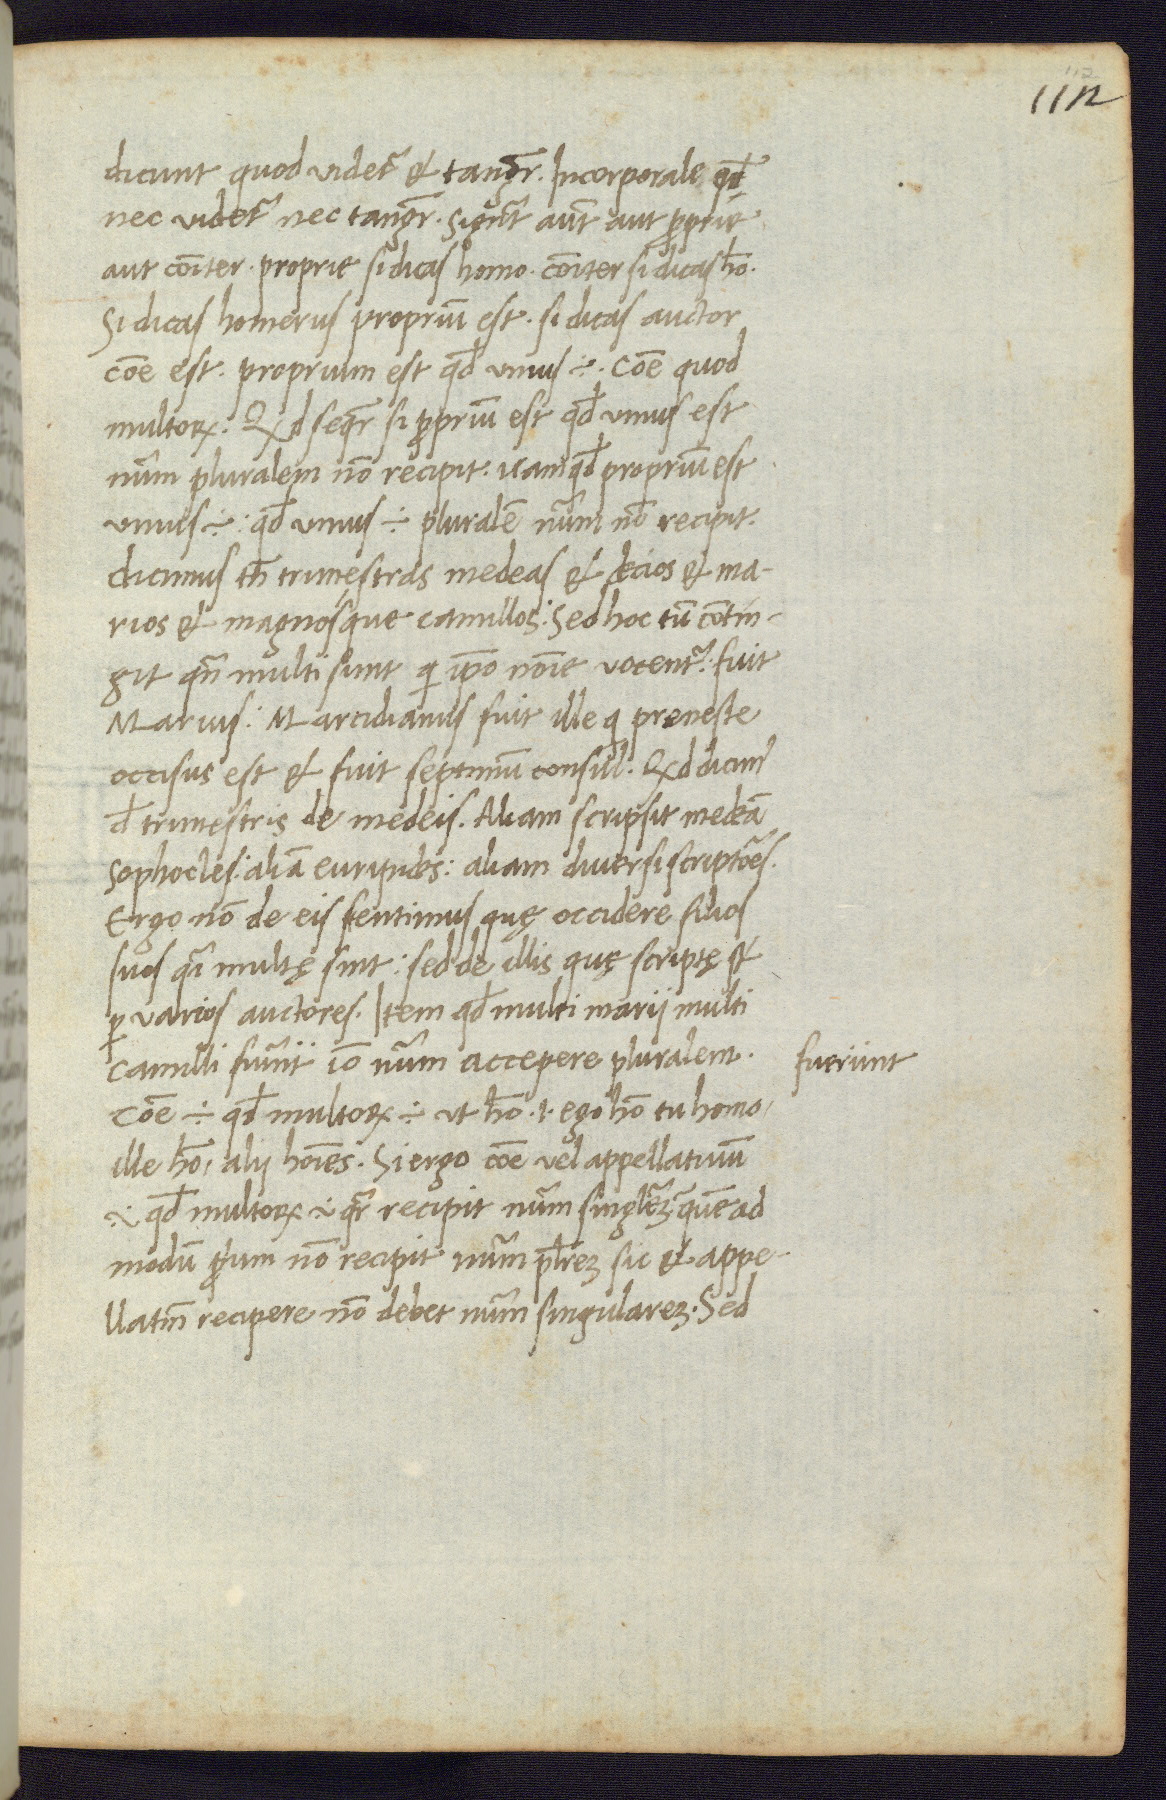 112
112
dicunt quod videt᷑ & tang̃r. Incorporale qđ
nec videt᷑ nec tang̃r. Signãt aũt aut ꝓprie
aut cõiter. proprie si dicas homo. cõiter si dicas hõ.
Si dicas homerus propriũ est. si dicas auctor
cõe est. proprium est qđ unius ÷. Cõe quod
multoꝝ. Qđ seq̃r si ꝓpriũ est qđ unius est
nũm pluralem nõ recipit. Nam qđ propriũ est
unius ÷: qđ unius ÷ pluralẽ nũm nõ recipit.
dicimus tñ trimestras medeas & decios & ma-
rios & magnosque camillos. Sed hoc tũ cõtin-
git qñ multi sunt q ipso noĩe vocent᷑. fuit
Marius: Marcidianus fuit ille q preneste
occisus est & fuit septimũ consul. Qđ dicim᷒
đ trimestris de medeis. Aliam scripsit medeã
Sophocles: aliã euripides: aliam diversi scriptões.
Ergo nõ de eis sentimus quę occidere filios
suos q̃i multę sint: sed de illis quę scriptę st̃
ꝑ varios auctores. Item qđ multi marij multi
camilli fiunt iõ nũm accepere pluralem. fuerunt
Cõe ÷ qđ multoꝝ ÷ ut hõ .i. ego hõ tu homo,
ille hõ, alij hoĩes. Si ergo cõe vel appellativũ
÷ qđ multoꝝ ÷ q̃r recipit nũm singlẽꝫ quẽad
modũ ꝓrium nõ recipit nũm pl̃reꝫ sic & appe-
llatiũ recipere nõ debet nũm singulareꝫ. Sed